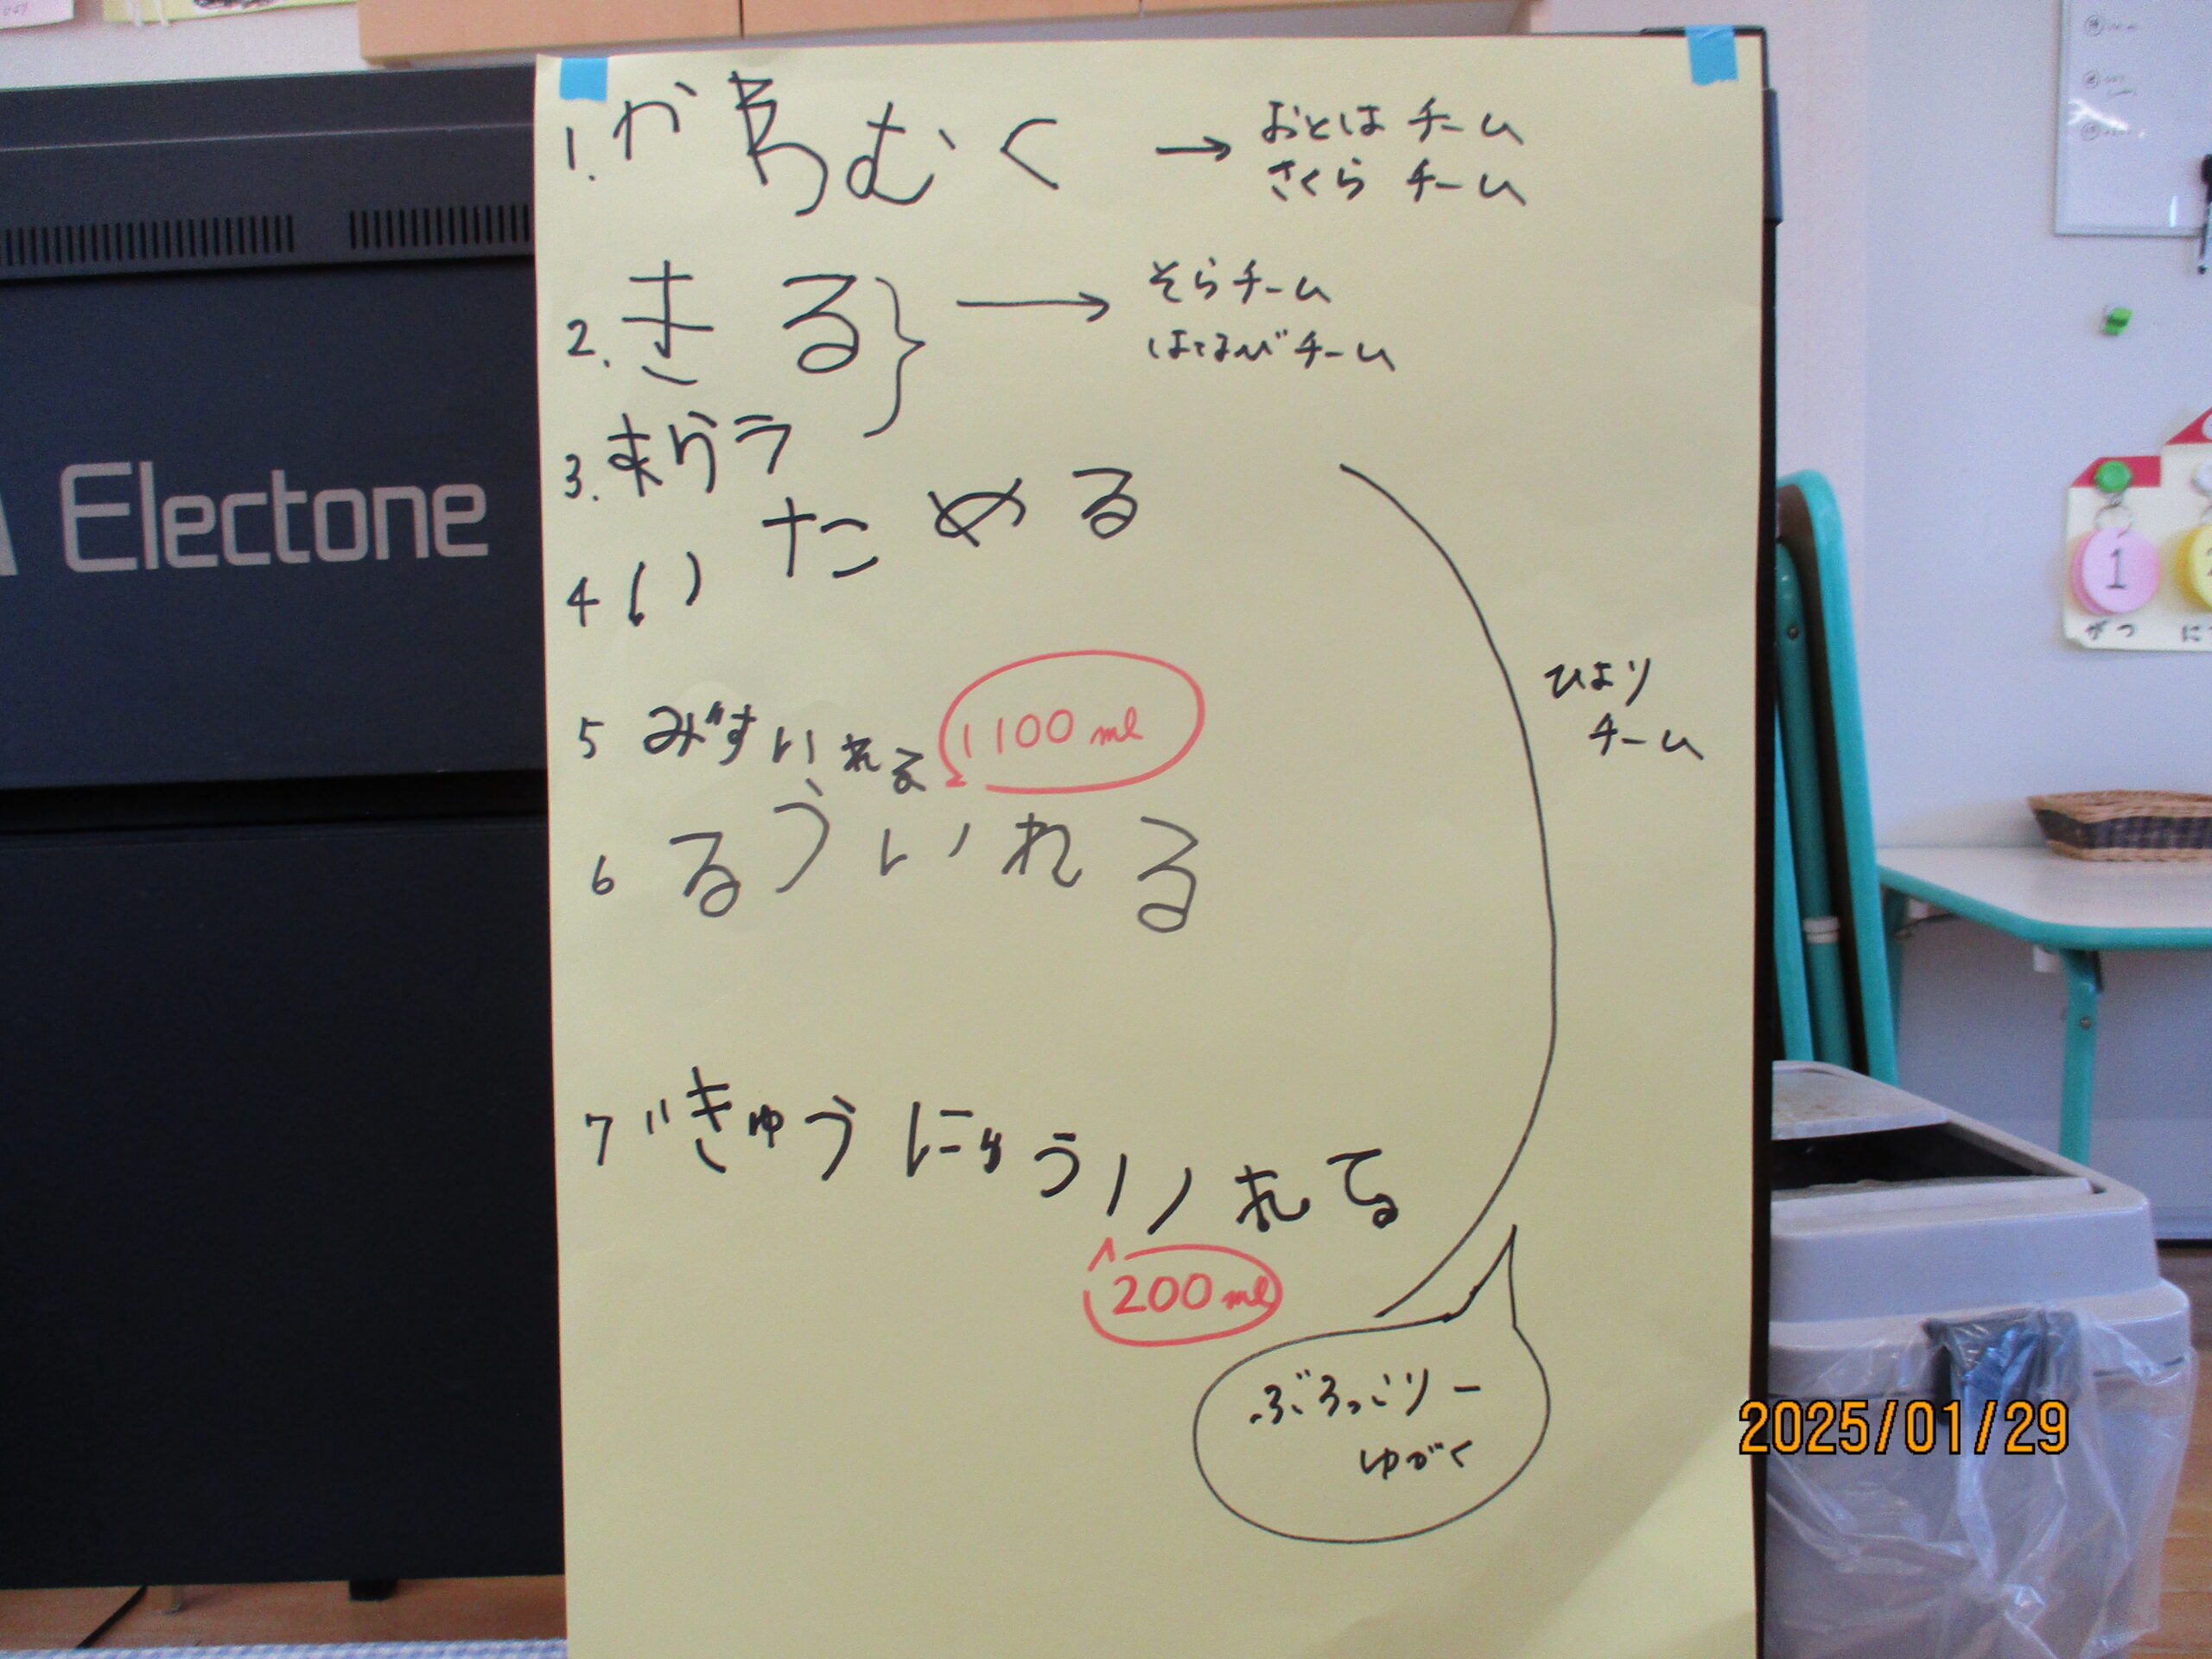 Electone
1. かわむく → おとは チーム
さくら チーム
2. きる → そらチーム
はなびチーム
3. まぜる
4 いためる
5 みずいれる 1100ml
6 るういれる
7 ぎゅうにゅういれる
200ml
ひより
チーム
ぶろっこりー
ゆがく
1
がつ
2025/01/29